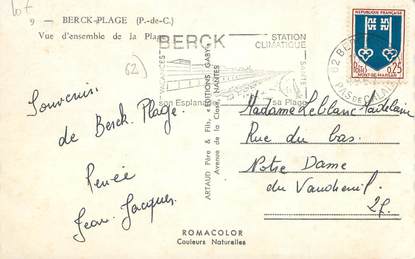 lot
9 — BERCK-PLAGE (P.-de-C.)
Vue d'ensemble de la Plage
62
BERCK
STATION
CLIMATIQUE
VACANCES
SANTÉ
son Esplanade
sa Plage
REPUBLIQUE FRANÇAISE
POSTES
0,25
MONT-DE-MARSAN
PAS DE CALAIS
Souvenirs
de Berck Plage.
Renée
Jean Jacques.
ARTAUD Père & Fils, EDITIONS GABY
Avenue de la Close, NANTES
Madame Leblanc Madelaine
Rue du bas.
Notre Dame
du Vaudreuil
27.
ROMACOLOR
Couleurs Naturelles